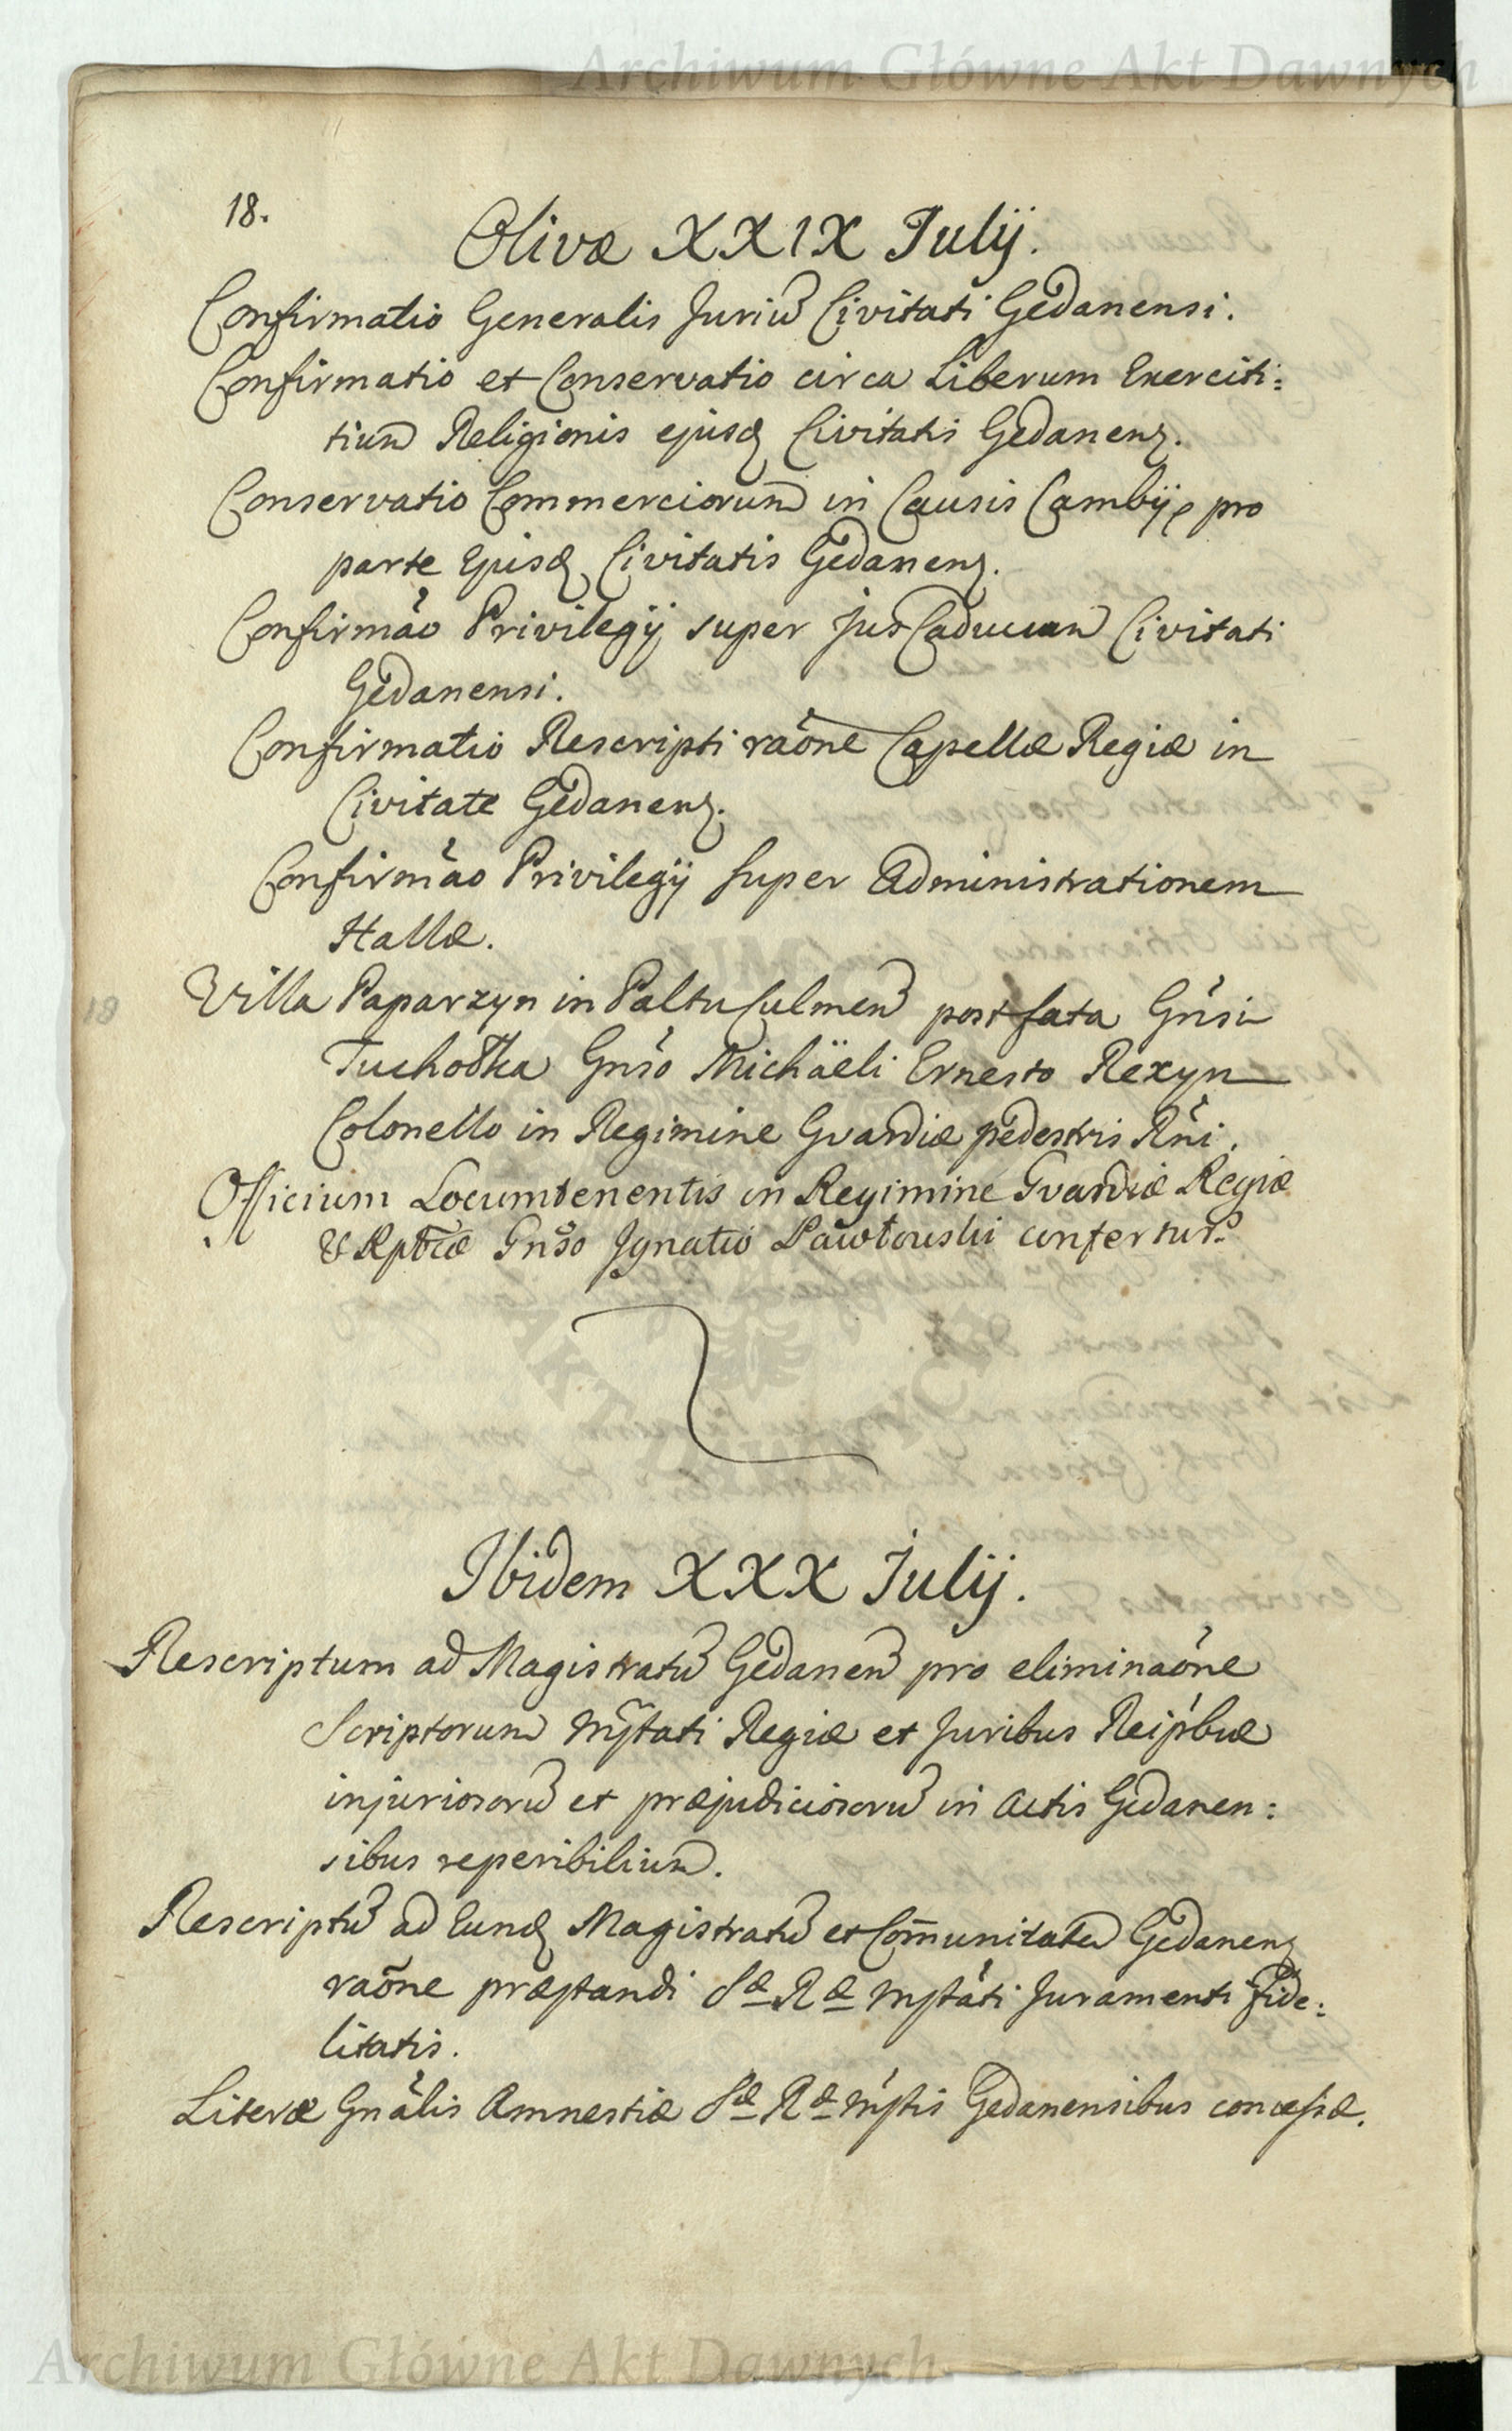 Archiwum Główne Akt Dawnych
18.
Olivæ XXIX Julij.
Confirmatio Generalis Juriũ Civitati Gedanensi.
Confirmatio et Conservatio circa Liberum Exerciti=
tium Religionis ejusq Civitatis Gedanens.
Conservatio Commerciorum in Causis Cambij, pro
parte Ejusd Civitatis Gedanens.
Confirmao Privilegij super jus Caducum Civitati
Gedanensi.
Confirmatio Rescripti raõne Capellæ Regiæ in
Civitate Gedanens.
Confirmao Privilegij super Administrationem
Hallæ.
18
Villa Paparzyn in Paltu Culmen post fata Gnsi
Tuchołka Gnso Michäeli Ernesto Rexyn
Colonello in Regimine Gvardiæ pedestris Rni.
Officium Locumtenentis in Regimine Gvardiæ Regiæ
& Rptcæ Gnso Ignatio Pawłouski confertur.
Ibidem XXX Julij.
Rescriptum ad Magistratũ Gedanen pro eliminaõne
Scriptorum Mstati Regiæ et Juribus Reipbcæ
injuriosorũ et præjudiciosorũ in Actis Gedanen=
sibus reperibilium.
Rescriptũ ad Eund Magistratũ et Com̃unitatem Gedanens
raõne præstandi Sæ Ræ Mstati Juramenti Fide=
litatis.
Literæ Gnalis Amnestiæ Sæ Ræ Mstis Gedanensibus concessæ.
Archiwum Główne Akt Dawnych